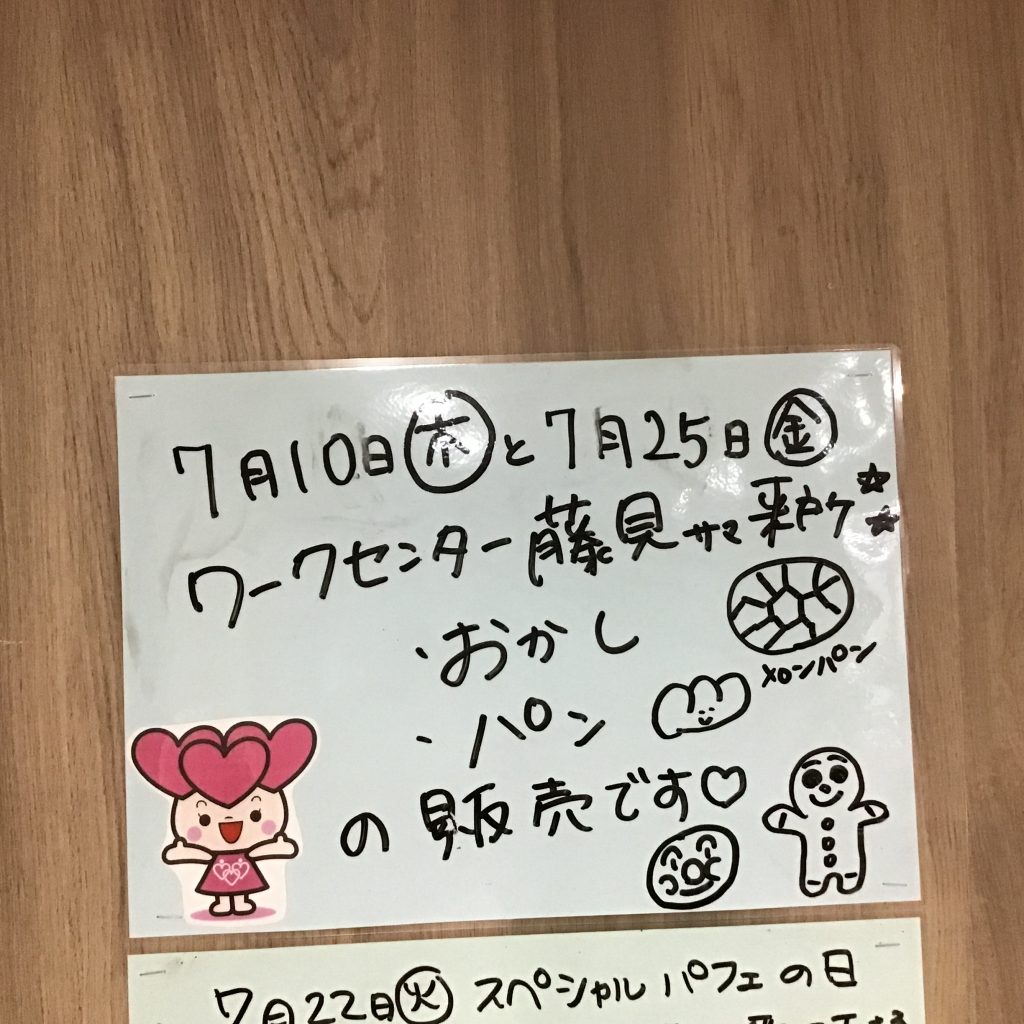 7月10日㊍と7月25日㊎
ワークセンター藤見サマ来所☆☆
・おかし
メロンパン
・パン
の販売です♡
7月22日㊋スペシャルパフェの日